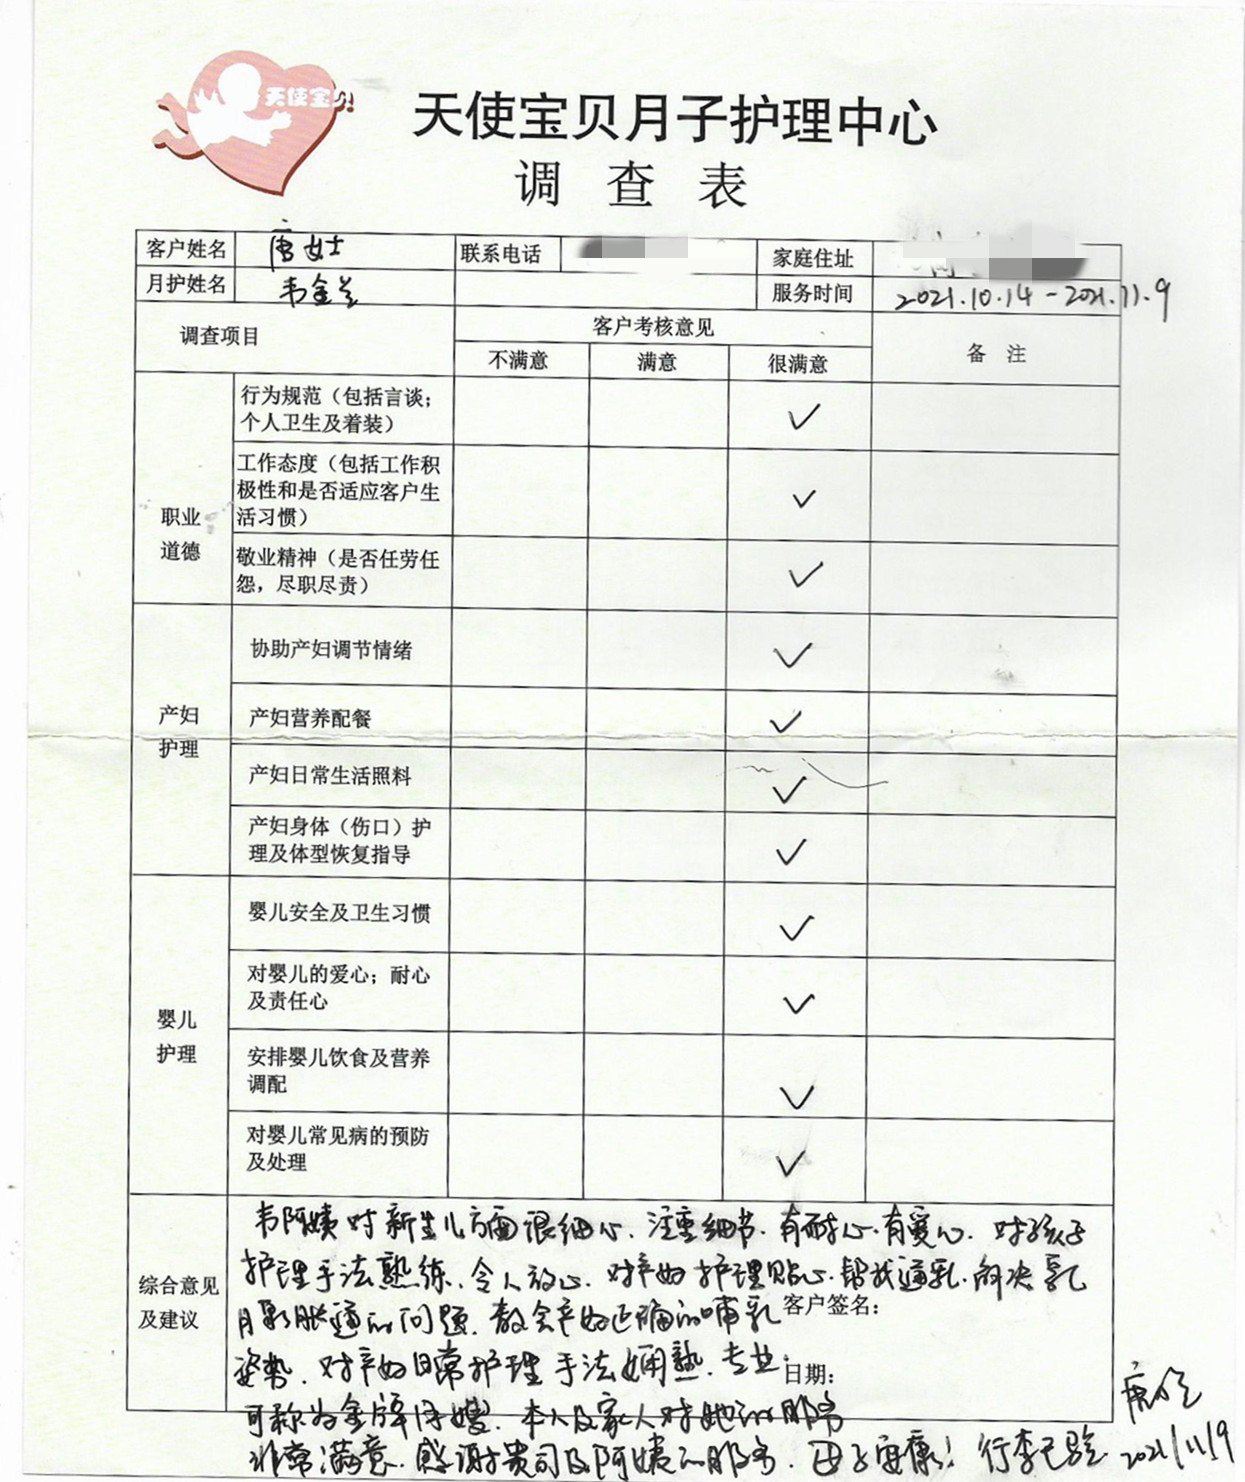 天使宝贝
天使宝贝月子护理中心
调查表
客户姓名 唐女士 联系电话 家庭住址
月护姓名 韦金兰 服务时间 2021.10.14-2021.11.9
调查项目 客户考核意见 备注
不满意 满意 很满意
职业
道德
行为规范（包括言谈；
个人卫生及着装） ✓
工作态度（包括工作积
极性和是否适应客户生
活习惯） ✓
敬业精神（是否任劳任
怨，尽职尽责） ✓
产妇
护理
协助产妇调节情绪 ✓
产妇营养配餐 ✓
产妇日常生活照料 ✓
产妇身体（伤口）护
理及体型恢复指导 ✓
婴儿
护理
婴儿安全及卫生习惯 ✓
对婴儿的爱心；耐心
及责任心 ✓
安排婴儿饮食及营养
调配 ✓
对婴儿常见病的预防
及处理 ✓
综合意见
及建议
韦阿姨对新生儿方面很细心、注重细节、有耐心、有爱心、对孩子
护理手法熟练、令人放心、对产妇护理贴心、帮我通乳、解决乳
胀通的问题、教会产妇正确的哺乳
姿势、对产妇日常护理手法娴熟、专业
可称为金牌月嫂、本人及家人对她的服务
非常满意、感谢贵司及阿姨的服务、母子安康！行李已验
客户签名：
日期：
唐
2021/11/9